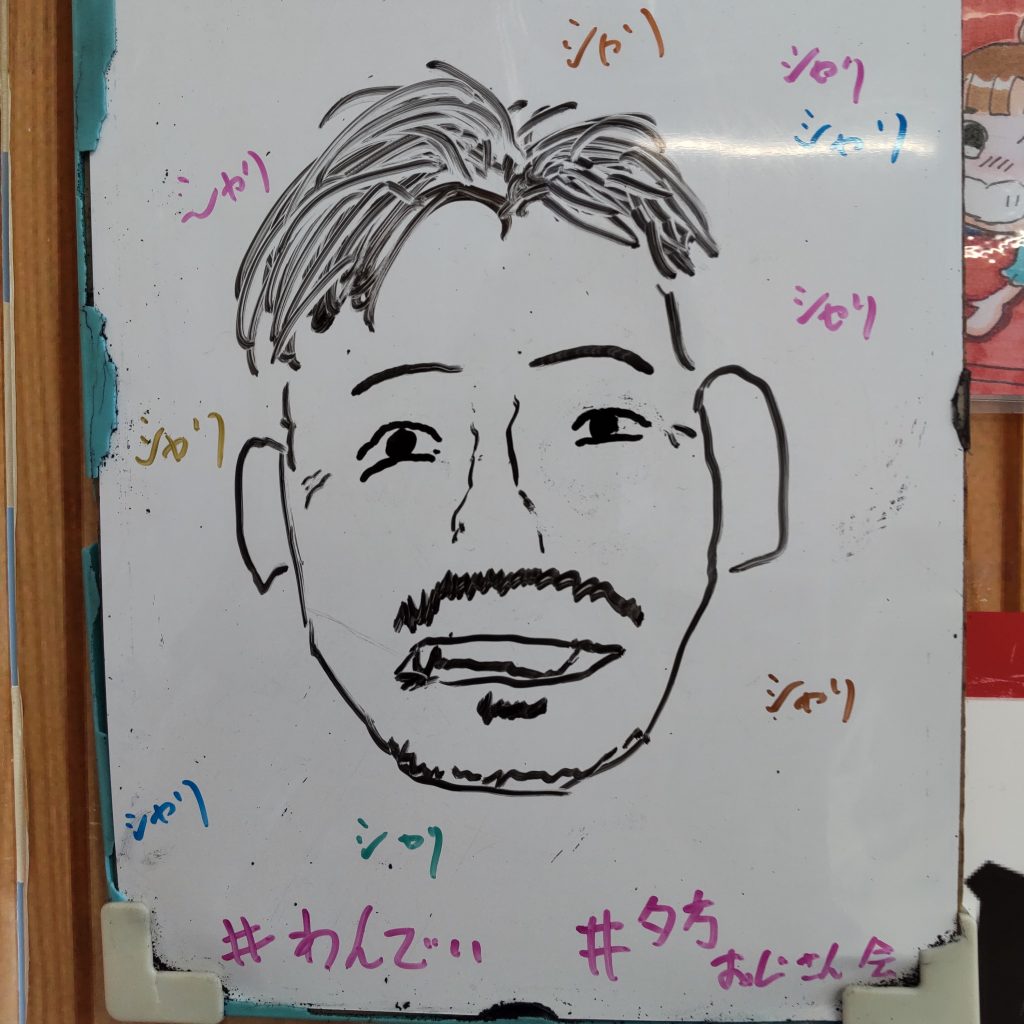 シャリ
シャリ
シャリ
シャリ
シャリ
シャリ
シャリ
シャリ
シャリ
#わんでぃ
#夕方
おじさん会